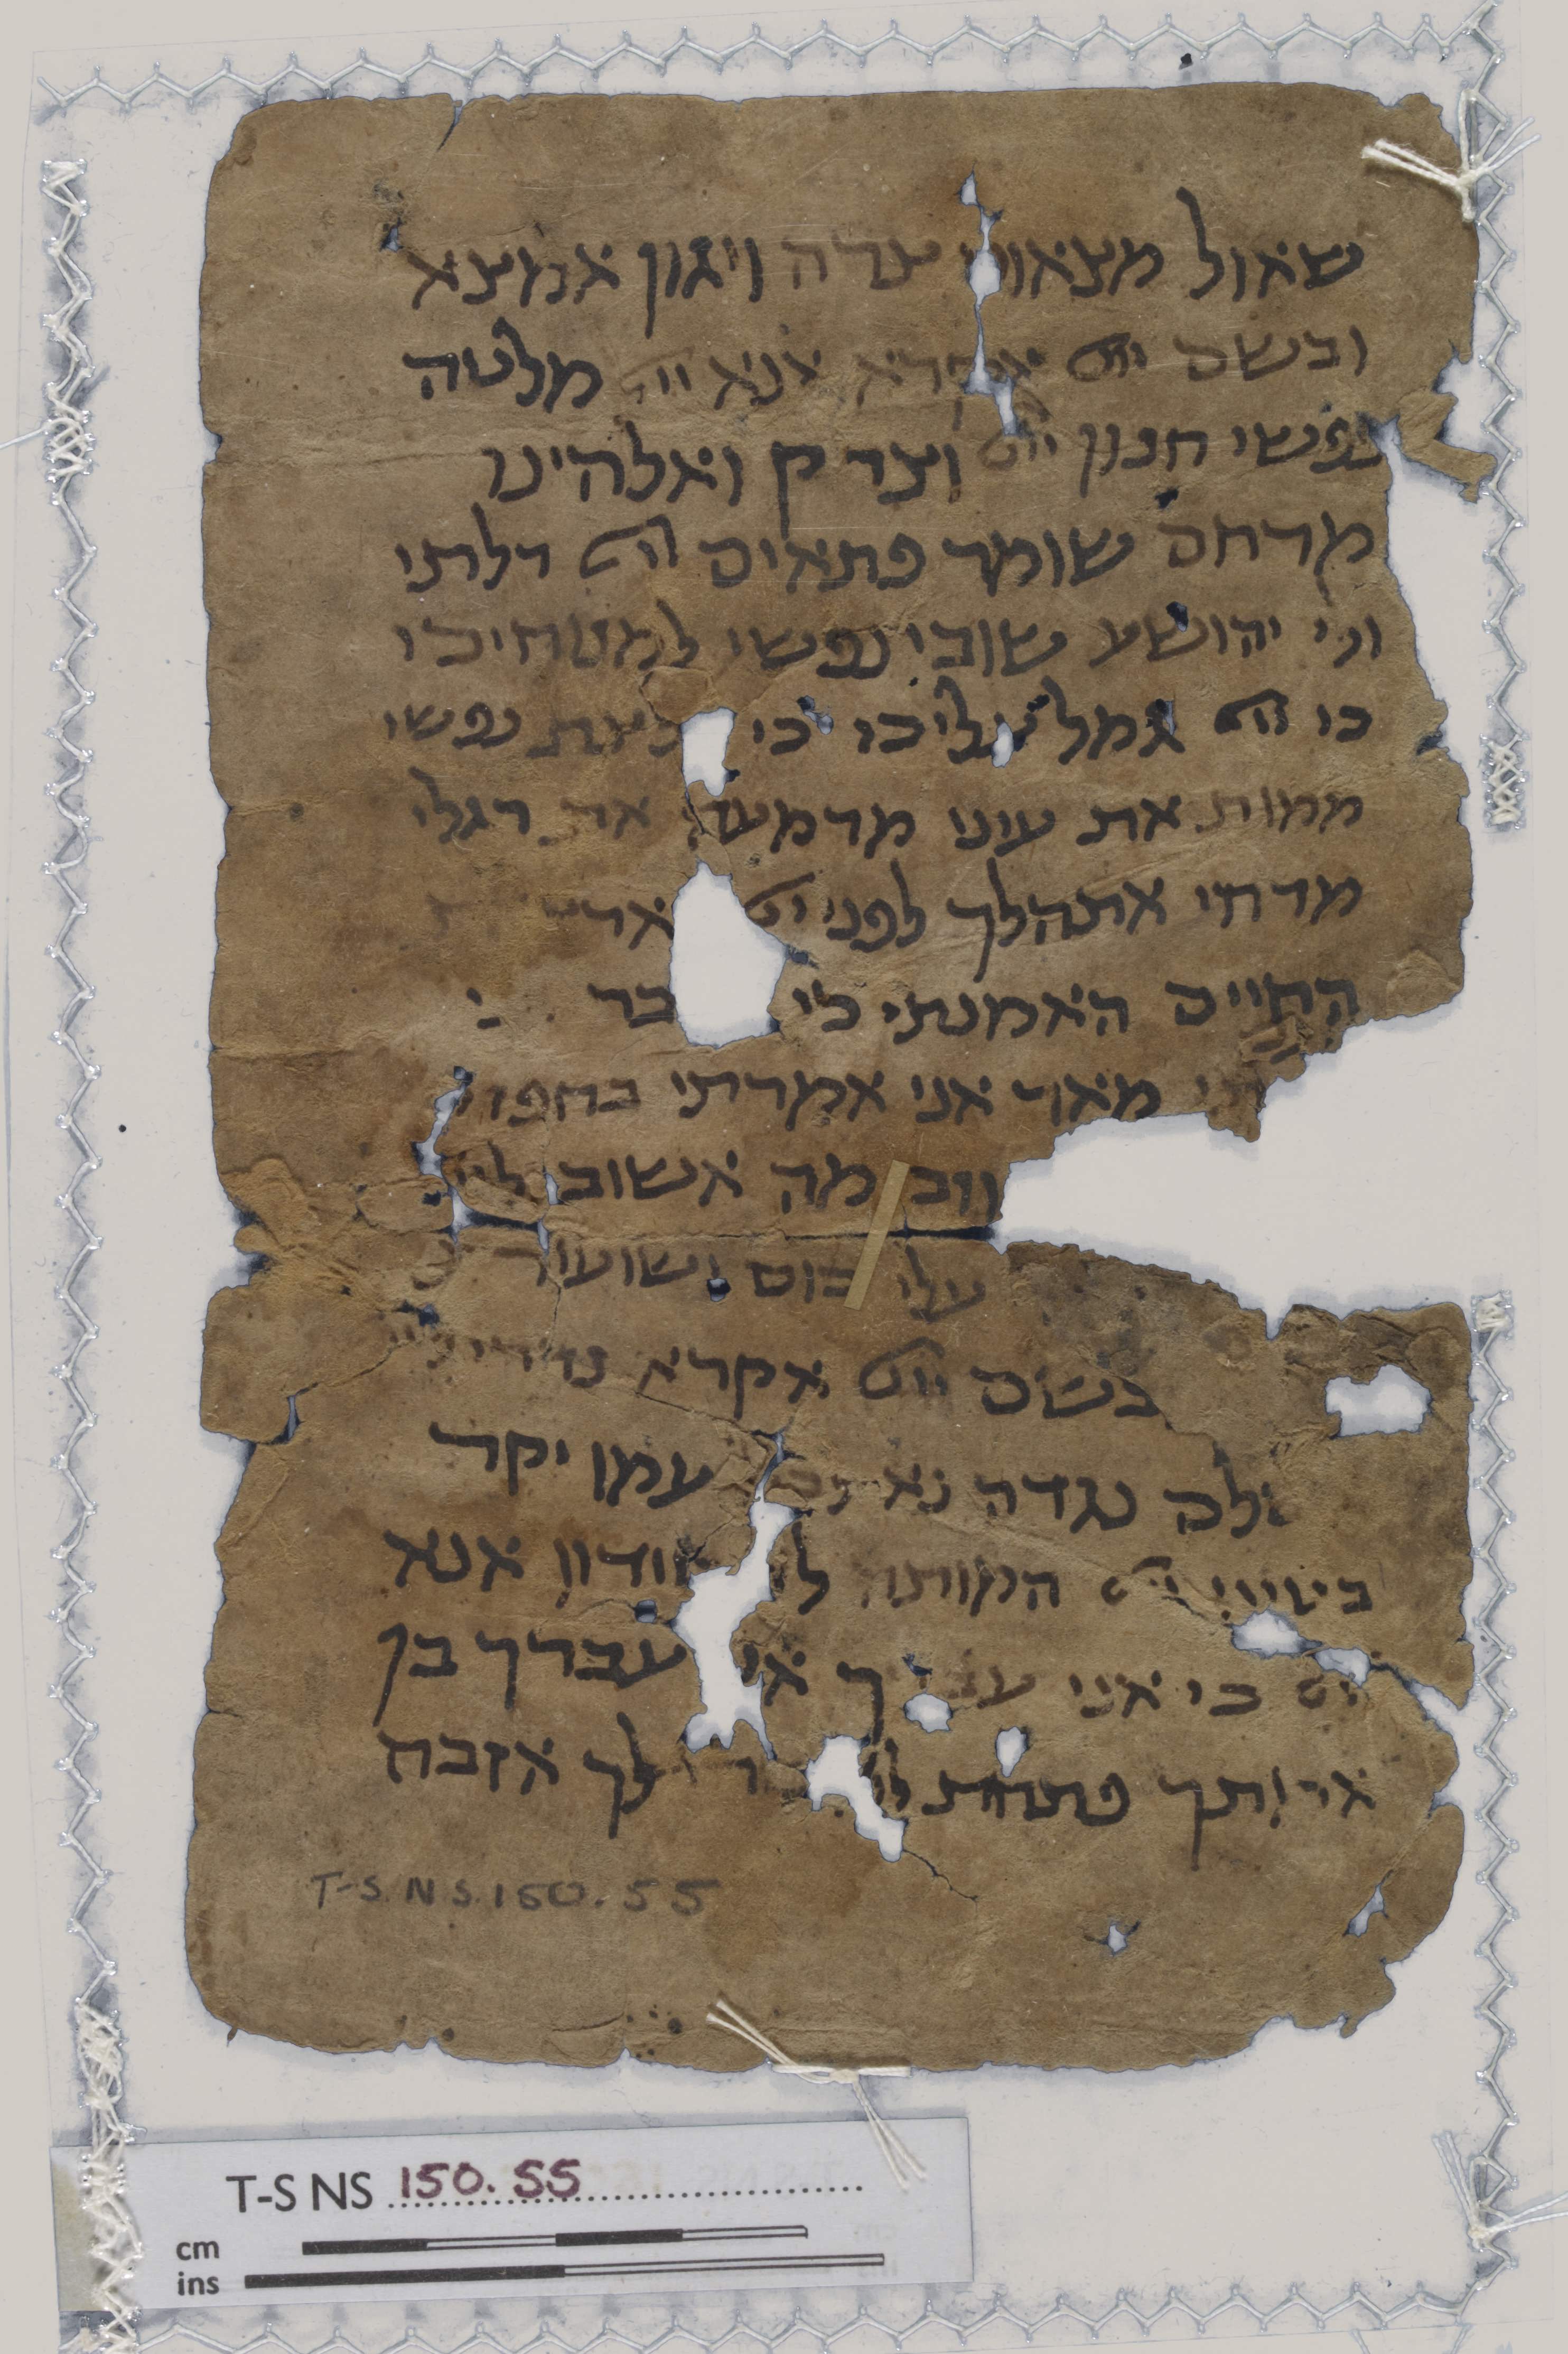 שאול מצאוני צרה ויגון אמצא
ובשם ייי אקרא אנא ייי מלטה
נפשי חנון ייי וצדק ואלהינו
מרחם שומר פתאים ייי דלתי
ולי יהושע שובי נפשי למנוחיכי
כי ייי גמל עליכי כי נפשי
ממות את עיני מדמעה את רגלי
מדחי אתהלך לפני ייי
החיים האמנתי כי
מאוד אני אמרתי בחפזי
מה אשוב
עלי כוס ישועות
בשם ייי אקרא נדרי
נגדה נא עמו יקר
בעיני ייי המותה אנא
ייי כי אני עבדך אני עבדך בן
פתחת לך אזבח
T-S N S. 150. 55
T-S NS 150. 55
cm
ins